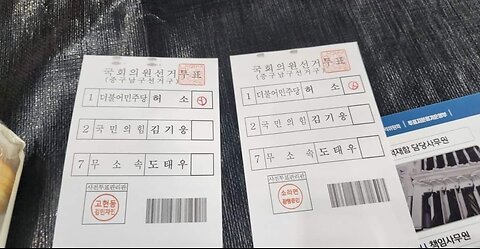 국회의원선거투표
(중구남구선거구)
1 더불어민주당 허 소
2 국 민 의 힘 김 기 웅
7 무 소 속 도 태 우
사전투표관리관
고현동
국회의원선거투표
(중구남구선거구)
1 더불어민주당 허 소
2 국 민 의 힘 김 기 웅
7 무 소 속 도 태 우
사전투표관리관
소라면
담당사무원
책임사무원